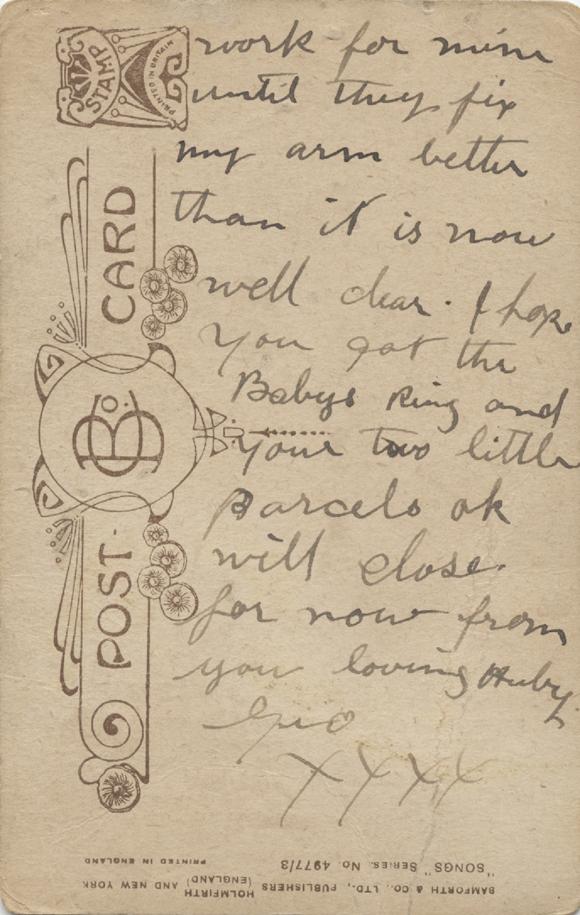 work for mine
until they fix
my arm better
than it is now
well dear. I hope
you got the
Babys Ring and
your two little
Parcels ok
will close.
for now from
you loving Huby.
XXXX
STAMP
PRINTED IN BRITAIN
POST CARD
B & Co.
BAMFORTH & CO., LTD., PUBLISHERS HOLMFIRTH (ENGLAND) AND NEW YORK
"SONGS" SERIES. No. 4977/3
PRINTED IN ENGLAND